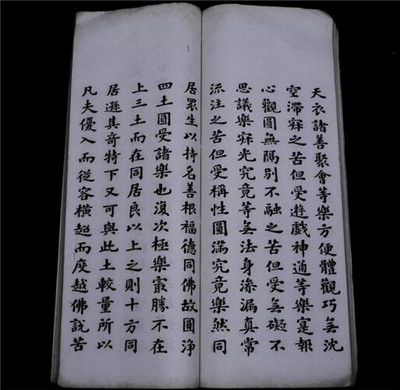 天衣諸善聚會等樂方便體觀巧無沈
空滯寂之苦但受遊戲神通等樂寔報
心觀圓無隔別不融之苦但受無礙不
思議樂寂光究竟等無法身滲漏真常
流注之苦但受稱性圓滿究竟樂然同
居眾生以持名善根福德同佛故圓淨
四土圓受諸樂也復次極樂最勝不在
上三土而在同居良以上之則十方同
居遜其奇特下又可與此土較量所以
凡夫優入而從容橫超而度越佛說苦